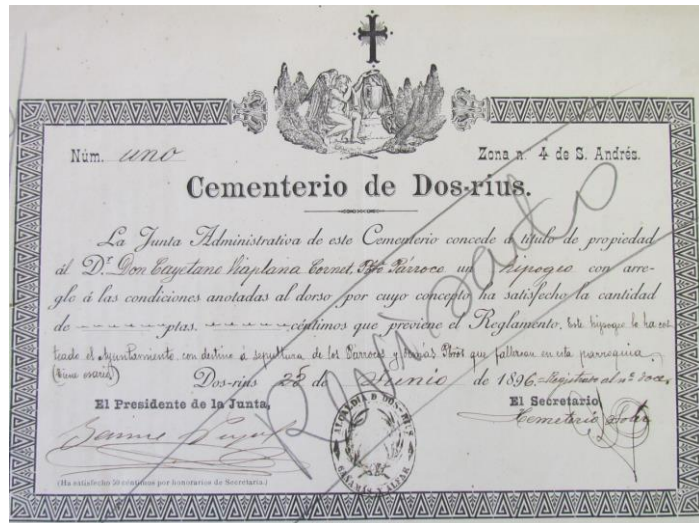 Núm. uno
Zona n.º 4 de S. Andrés.
Cementerio de Dos-rius.
La Junta Administrativa de este Cementerio concede á título de propiedad
ál Dr. Don Cayetano Viaplana Cornet Pbro Párroco un hipogeo con arre-
glo á las condiciones anotadas al dorso por cuyo concepto ha satisfecho la cantidad
de ptas. céntimos que previene el Reglamento. Este hipogeo lo ha cos
teado el Ayuntamiento con destino á sepultura de los Párrocos y demás Pbros que fallezcan en esta parroquia
(tiene osario)
Dos-rius 28 de Junio de 1896. Registrado al nº doce.
El Presidente de la Junta,
El Secretario
Jaime
Hemeterio
ALCALDIA D DOS-RIUS
CANAMÁS Y ALFAR
(Ha satisfecho 50 céntimos por honorarios de Secretaría.)